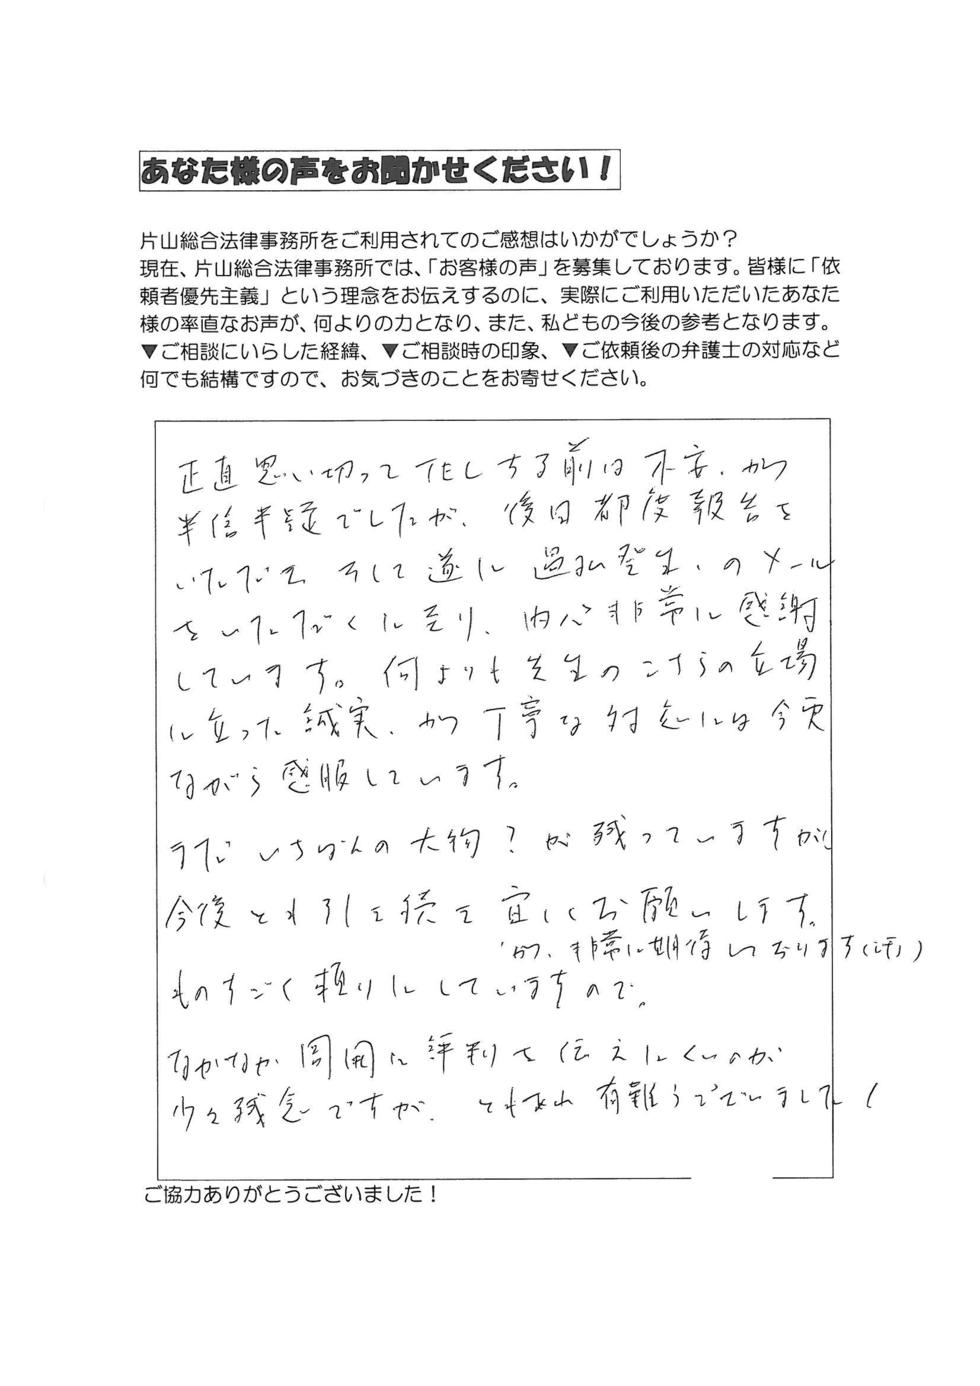 あなた様の声をお聞かせください！
片山総合法律事務所をご利用されてのご感想はいかがでしょうか？
現在、片山総合法律事務所では、「お客様の声」を募集しております。皆様に「依
頼者優先主義」という理念をお伝えするのに、実際にご利用いただいたあなた
様の率直なお声が、何よりの力となり、また、私どもの今後の参考となります。
▼ご相談にいらした経緯、▼ご相談時の印象、▼ご依頼後の弁護士の対応など
何でも結構ですので、お気づきのことをお寄せください。
正直思い切って化しちる前は不安、かつ
半信半疑でしたが、後日都度報告を
いただき そして遂に過払発生、のメール
をいただくに至り、内心非常に感謝
しています。何よりも先生のこちらの立場
に立った誠実、かつ丁寧な対応には今更
ながら感服しています。
まだいちばんの大物？が残っていますが
今後とも引き続き宜しくお願いします。
かつ、非常に期待しております
ものすごく頼りにしていますので。
なかなか周囲に評判を伝えにくいのが
少々残念ですが、ともあれ有難うございました！
ご協力ありがとうございました！